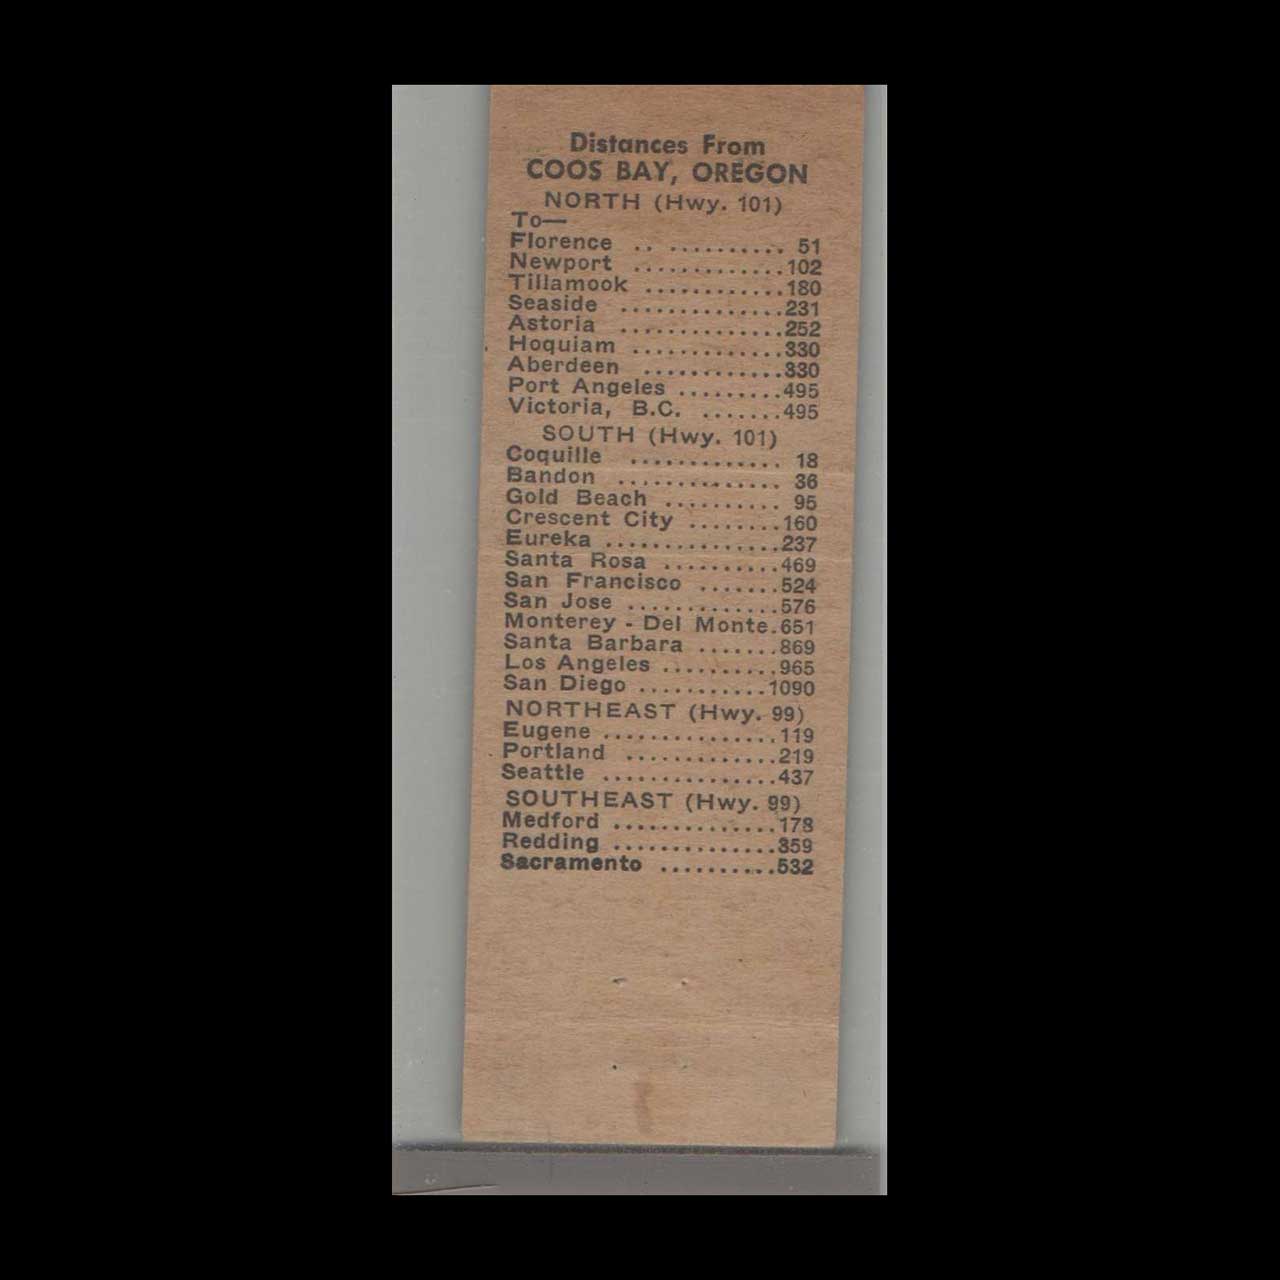 Distances From
COOS BAY, OREGON
NORTH (Hwy. 101)
To—
Florence .. .......... 51
Newport .............102
Tillamook ............180
Seaside ..............231
Astoria ..............252
Hoquiam .............330
Aberdeen ............330
Port Angeles .........495
Victoria, B.C. .......495
SOUTH (Hwy. 101)
Coquille ............. 18
Bandon .............. 36
Gold Beach .......... 95
Crescent City ........160
Eureka ...............237
Santa Rosa ..........469
San Francisco .......524
San Jose .............576
Monterey - Del Monte.651
Santa Barbara .......869
Los Angeles ..........965
San Diego ...........1090
NORTHEAST (Hwy. 99)
Eugene ...............119
Portland .............219
Seattle ...............437
SOUTHEAST (Hwy. 99)
Medford ..............178
Redding ..............359
Sacramento ..........532